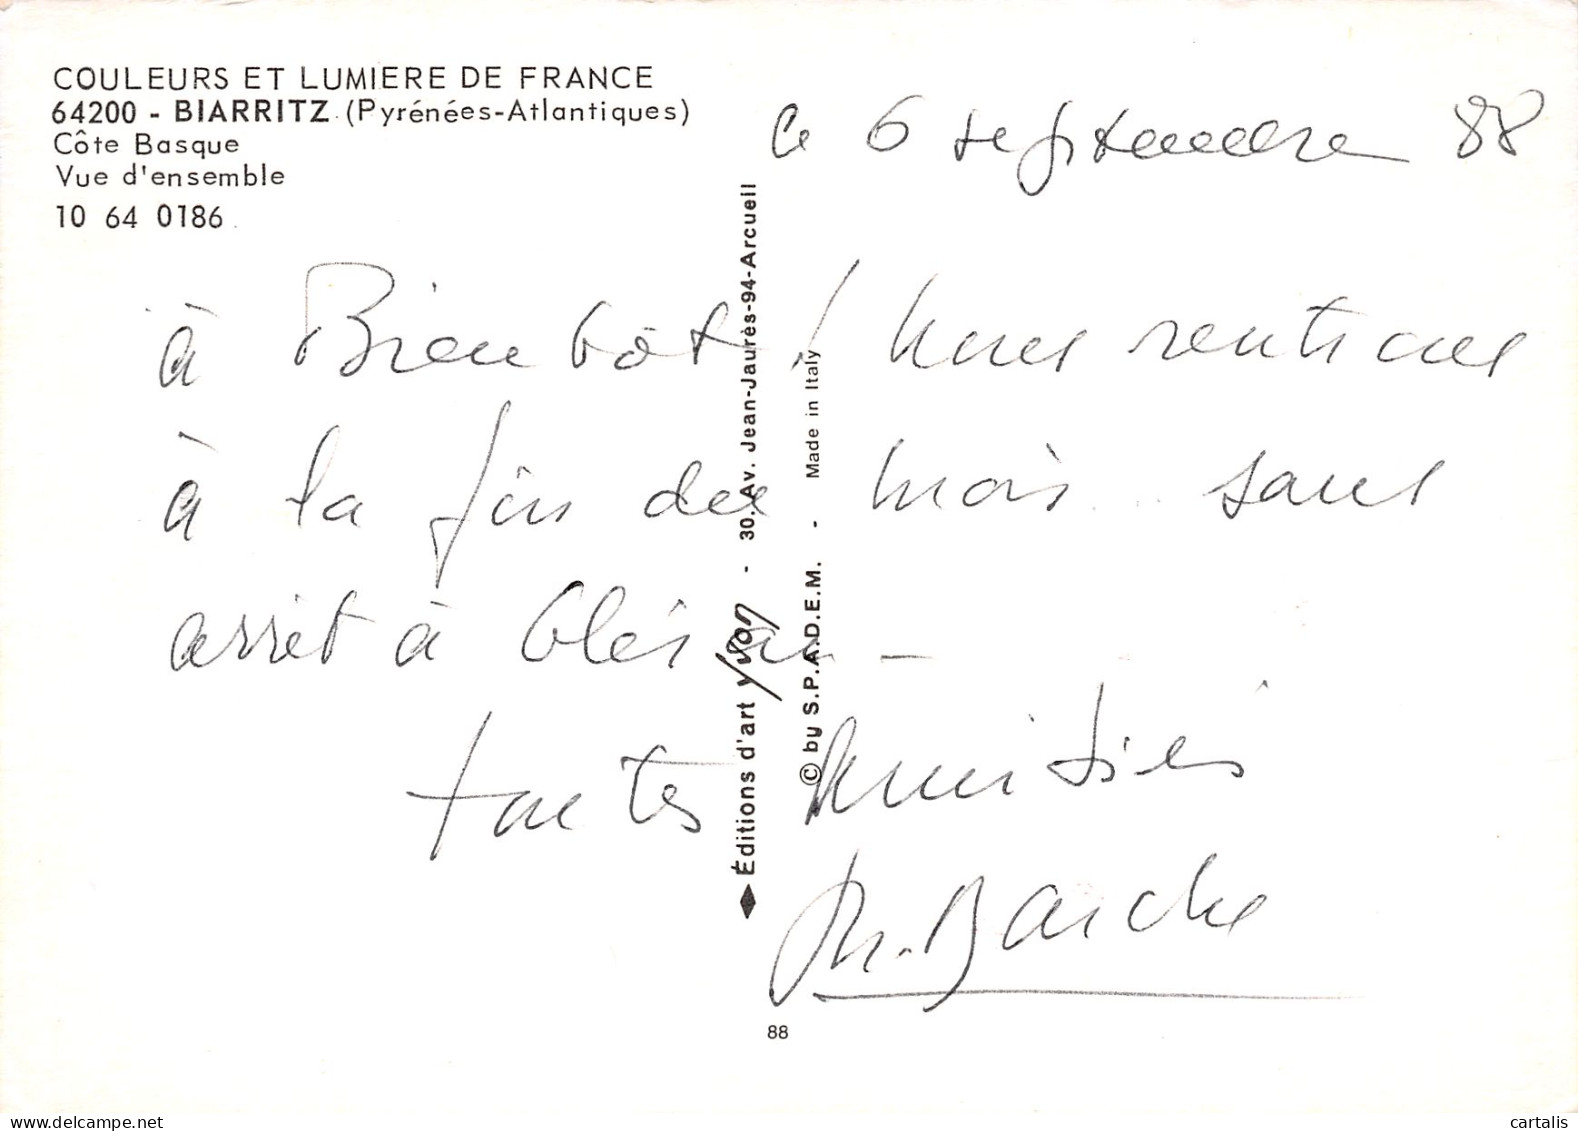 COULEURS ET LUMIERE DE FRANCE
64200 - BIARRITZ (Pyrénées-Atlantiques)
Côte Basque
Vue d'ensemble
10 64 0186
le 6 septembre 88
à Bientôt ! Nous rentrons
à la fin du mois sans
arrêt à
toutes amitiés
Éditions d'art Yvon - 30. Av. Jean-Jaurès-94-Arcueil
© by S.P.A.D.E.M. - Made in Italy
88
cartalis
delcampe.net